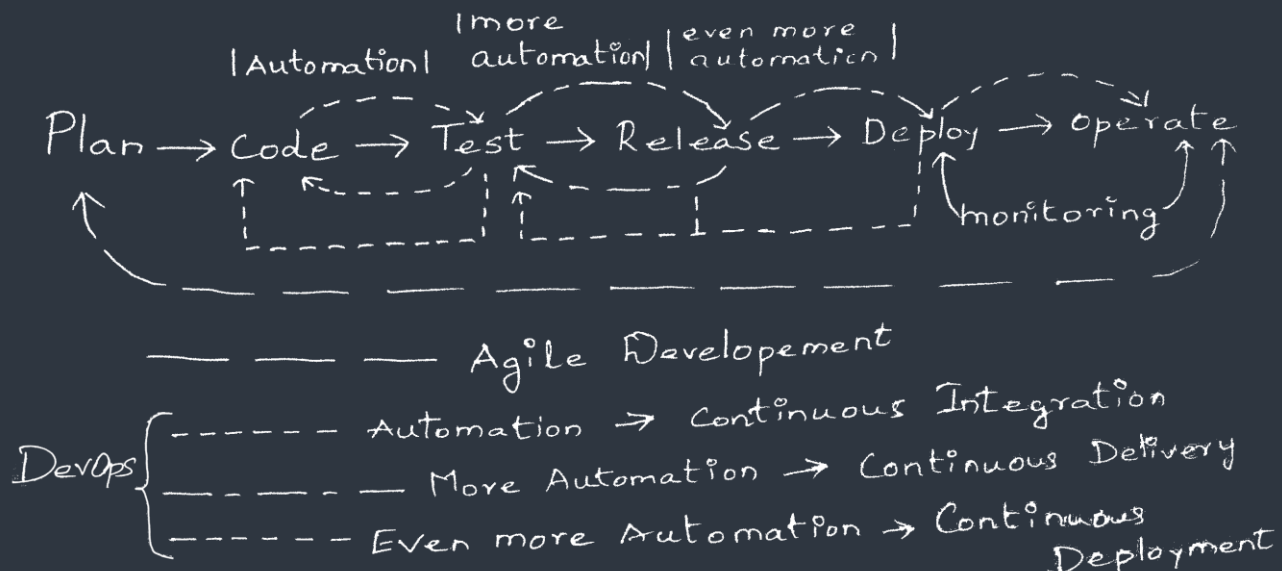 |Automation|
|more
automation|
|even more
automation|
Plan → Code → Test → Release → Deploy → Operate
monitoring
Agile Developement
DevOps
Automation → Continuous Integration
More Automation → Continuous Delivery
Even more Automation → Continuous
Deployment